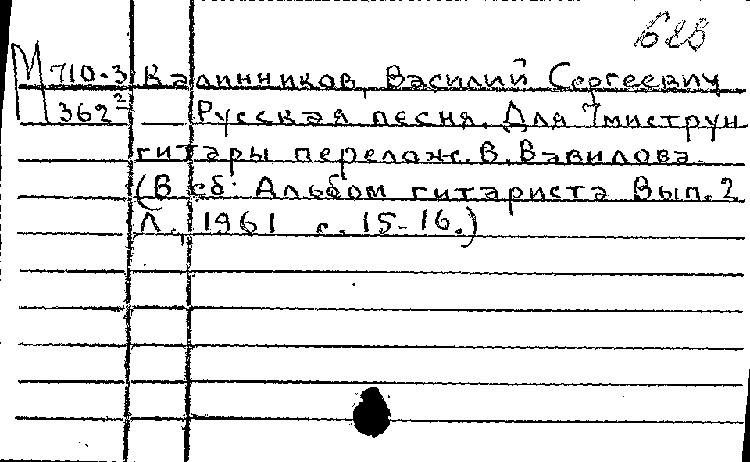 62в
М 710-3 Калинников, Василий Сергеевич
362² Русская песня. Для 7миструн
гитары перелож. В. Вавилова
(В сб: Альбом гитариста Вып. 2
Л., 1961 с. 15-16.)